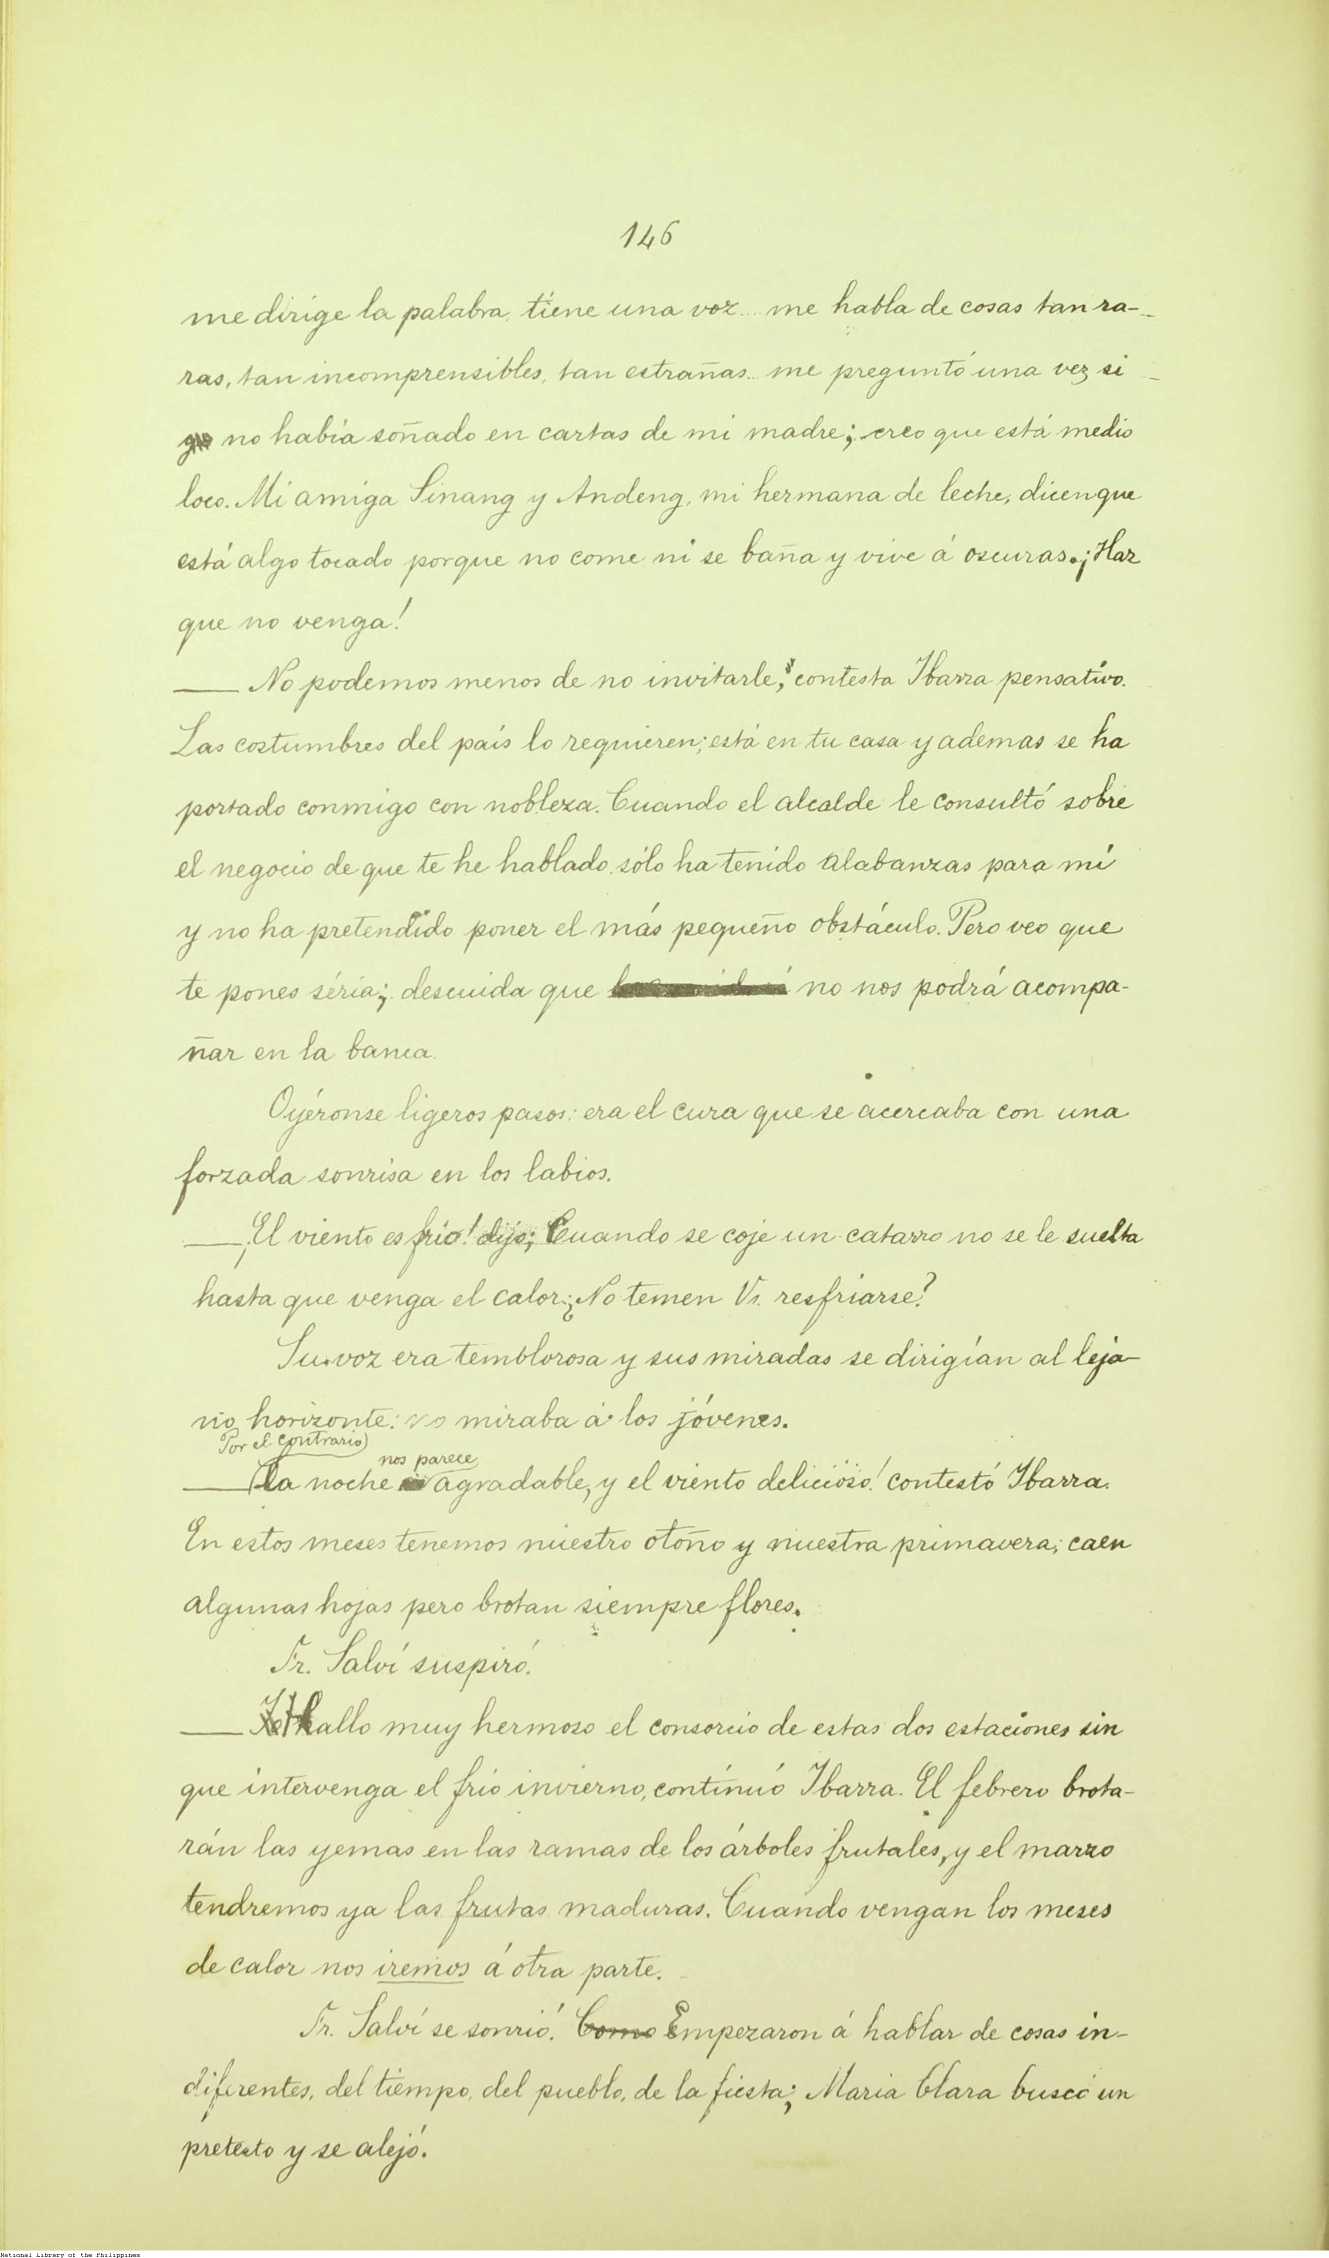 146
me dirige la palabra, tiene una voz... me habla de cosas tan ra-
ras, tan incomprensibles, tan estrañas... me preguntó una vez si
no había soñado en cartas de mi madre; creo que está medio
loco. Mi amiga Sinang y Andeng, mi hermana de leche, dicen que
está algo tocado porque no come ni se baña y vive á oscuras. ¡Haz
que no venga!
— No podemos menos de no invitarle, contesta Ibarra pensativo.
Las costumbres del país lo requieren; está en tu casa y ademas se ha
portado conmigo con nobleza. Cuando el alcalde le consultó sobre
el negocio de que te he hablado, sólo ha tenido alabanzas para mí
y no ha pretendido poner el más pequeño obstáculo. Pero veo que
te pones séria; descuida que no nos podrá acompa-
ñar en la banca.
Oyéronse ligeros pasos: era el cura que se acercaba con una
forzada sonrisa en los labios.
— ¡El viento es frío! dijo; Cuando se coje un catarro no se le suelta
hasta que venga el calor; ¿No temen Vs. resfriarse?
Su voz era temblorosa y sus miradas se dirigían al leja-
no horizonte: no miraba á los jóvenes.
Por el contrario
nos parece
— La noche agradable, y el viento delicioso! contestó Ibarra.
En estos meses tenemos nuestro otoño y nuestra primavera; caen
algunas hojas pero brotan siempre flores.
Fr. Salví suspiró.
— Hallo muy hermoso el consorcio de estas dos estaciones sin
que intervenga el frío invierno, continuó Ibarra. El febrero brota-
rán las yemas en las ramas de los árboles frutales, y el marzo
tendremos ya las frutas maduras. Cuando vengan los meses
de calor nos iremos á otra parte.
Fr. Salví se sonrió. Como Empezaron á hablar de cosas in-
diferentes, del tiempo, del pueblo, de la fiesta; Maria Clara buscó un
pretesto y se alejó.
National Library of the Philippines